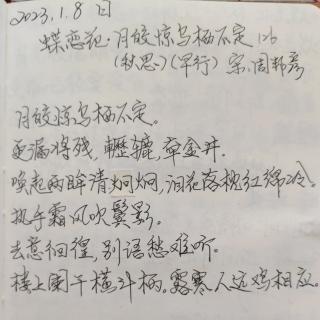 2023.1.8 日
蝶恋花·月皎惊乌栖不定
(秋思)(早行) 宋.周邦彦
月皎惊乌栖不定。
更漏将残,轣辘,牵金井.
唤起两眸清炯炯,泪花落枕红绵冷。
执手霜风吹鬓影。
去意徊徨,别语愁难听。
楼上阑干横斗柄。露寒人远鸡相应。